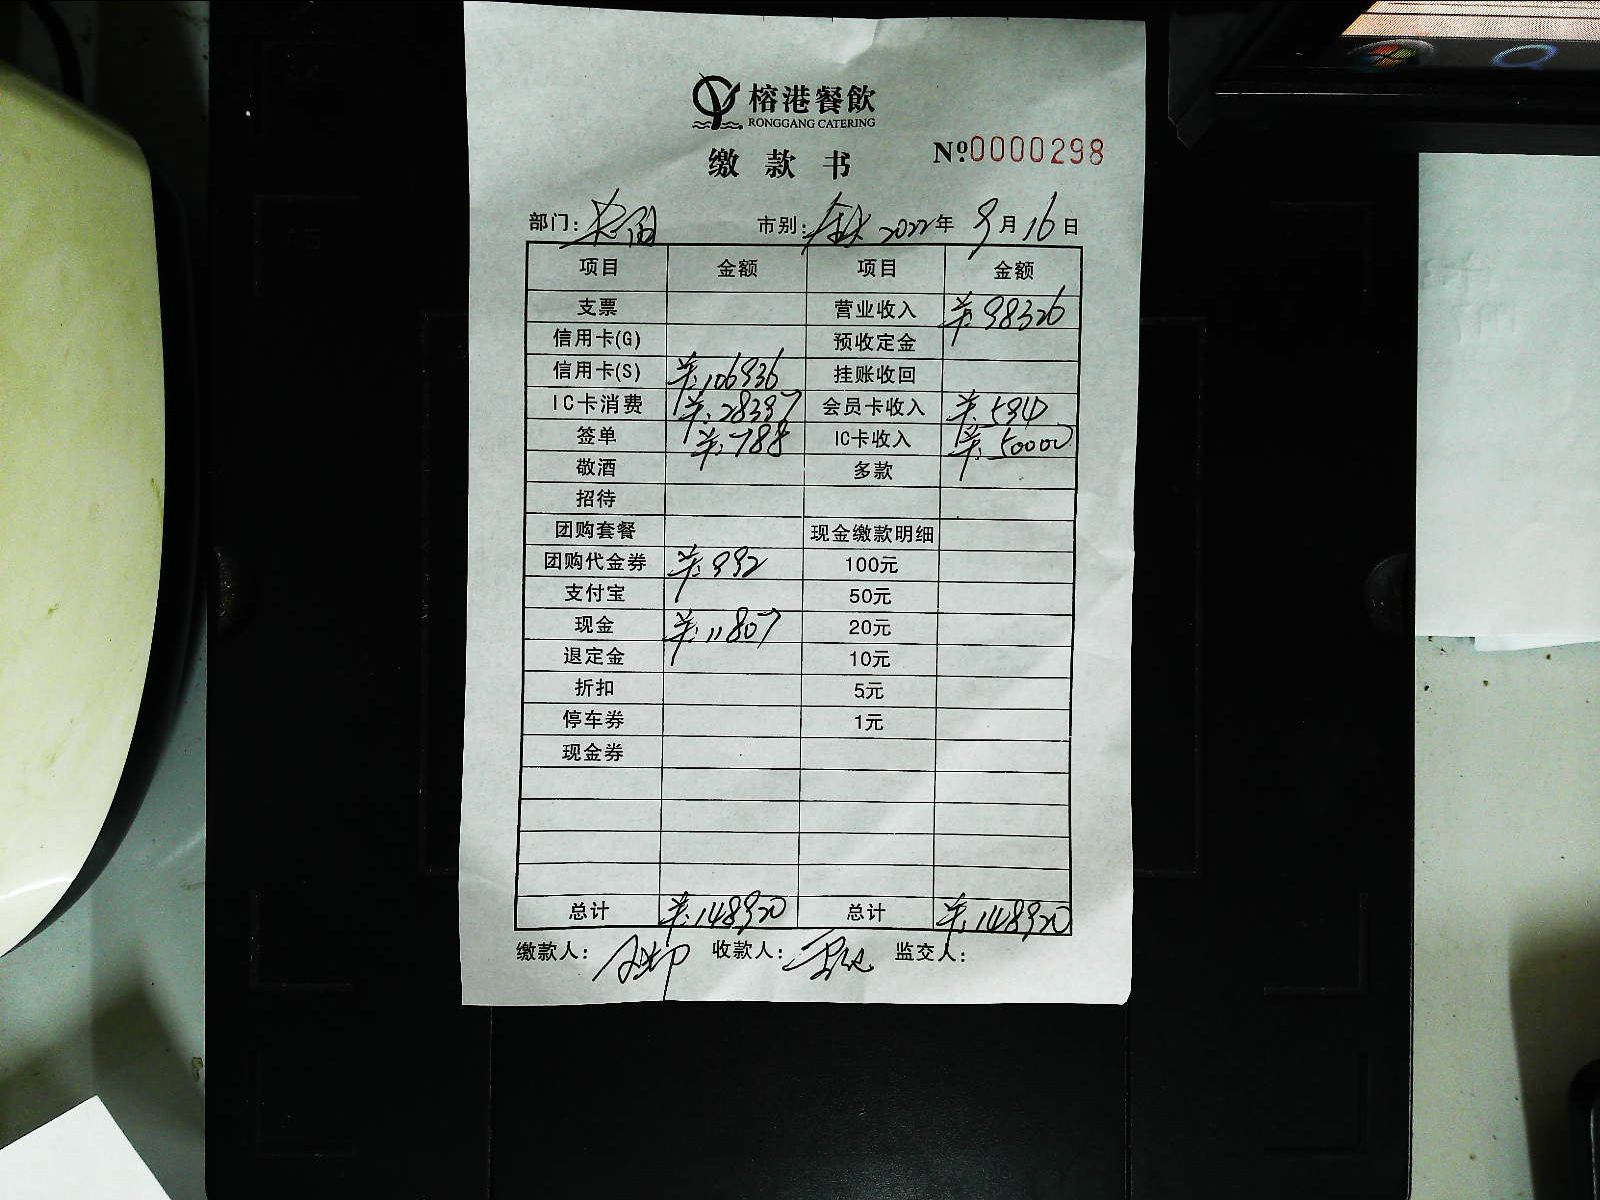 榕港餐飲
RONGGANG CATERING
缴款书
№0000298
部门: 市别: 2022年 9月16日
项目 金额 项目 金额
支票 营业收入 ¥:98326
信用卡(G) 预收定金
信用卡(S) ¥:106936 挂账收回
IC卡消费 ¥:28397 会员卡收入 ¥:594
签单 ¥:788 IC卡收入 ¥:50000
敬酒 多款
招待
团购套餐 现金缴款明细
团购代金券 ¥:992 100元
支付宝 50元
现金 ¥:11807 20元
退定金 10元
折扣 5元
停车券 1元
现金券
总计 ¥:148920 总计 ¥:148920
缴款人: 收款人: 监交人: